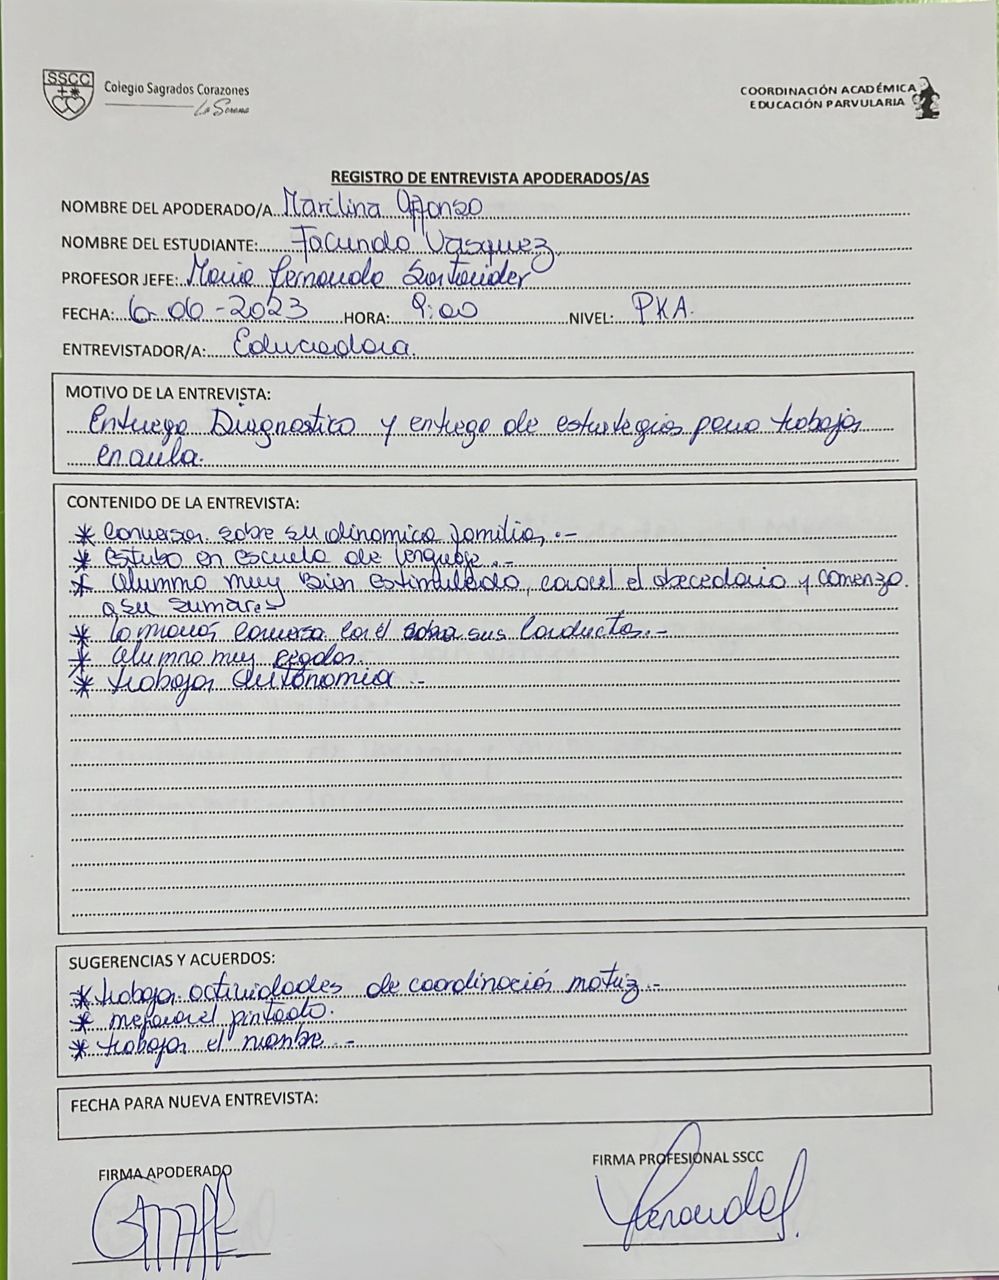 SSCC
Colegio Sagrados Corazones
La Serena
COORDINACIÓN ACADÉMICA
EDUCACIÓN PARVULARIA
REGISTRO DE ENTREVISTA APODERADOS/AS
NOMBRE DEL APODERADO/A Marilina Affonso
NOMBRE DEL ESTUDIANTE: Facundo Vasquez
PROFESOR JEFE: Maria Fernanda Santander
FECHA: 6-06-2023 HORA: 9:00 NIVEL: PKA.
ENTREVISTADOR/A: Educadora.
MOTIVO DE LA ENTREVISTA:
Entrega Diagnostico y entrega de estrategias para trabajar
en aula.
CONTENIDO DE LA ENTREVISTA:
* Conversar sobre su dinamica familiar.-
* Estubo en escuela de lenguaje.-
* Alumno muy bien estimulado, conoce el abecedario y comenzo
a su sumar
* La mamá conversa con él sobre sus conductas.-
* Alumno muy regalon.
* trabajar autonomia.-
SUGERENCIAS Y ACUERDOS:
* trabajar actividades de coordinación motriz.-
* mejorar el pintado.
* trabajar el nombre.-
FECHA PARA NUEVA ENTREVISTA:
FIRMA APODERADO
FIRMA PROFESIONAL SSCC